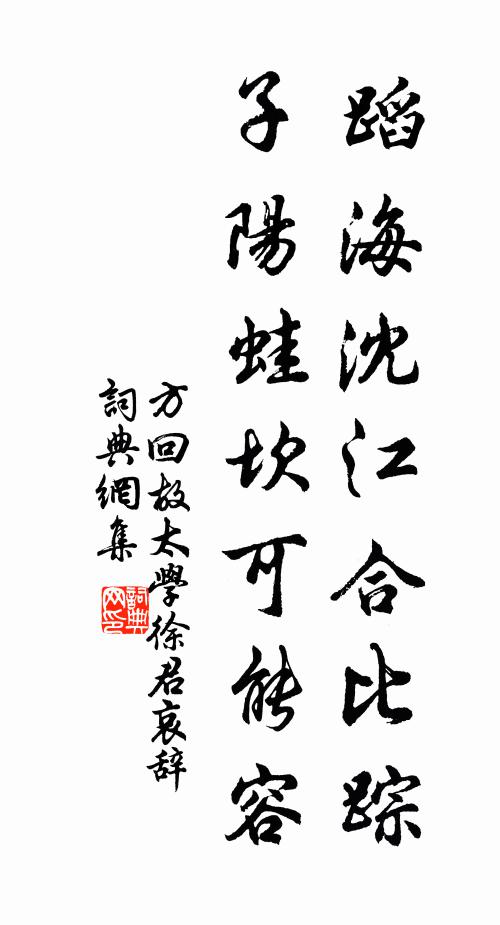 蹈海沈江合比踪
子陽蛙坎可能容
方回故太學徐君哀辞
詞典網集
詞典网印